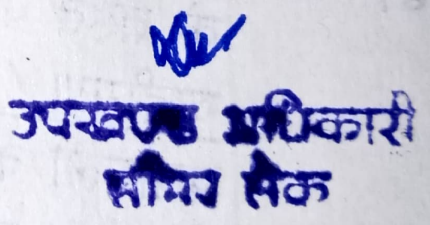 उपखण्ड अधिकारी
सांभर लेक